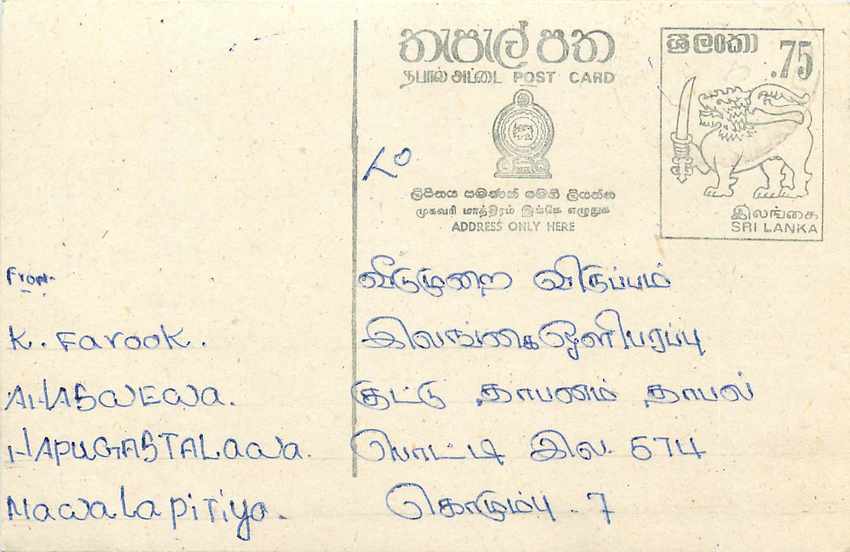 තැපැල් පත
தபால் அட்டை POST CARD
ශ්‍රී ලංකා .75
ලිපිනය පමණක් මෙහි ලියන්න
முகவரி மாத்திரம் இங்கே எழுதுக
ADDRESS ONLY HERE
இலங்கை
SRI LANKA
To
வீடுமுறை விருப்பம்
இலங்கை ஒளிபரப்பு
கூட்டு தாபனம் தாபல்
பொட்டி இல. 574
கொழும்பு. 7
From-
K. Farook.
AHASWEWA.
HAPUGASTALAWA.
Nawalapitiya.